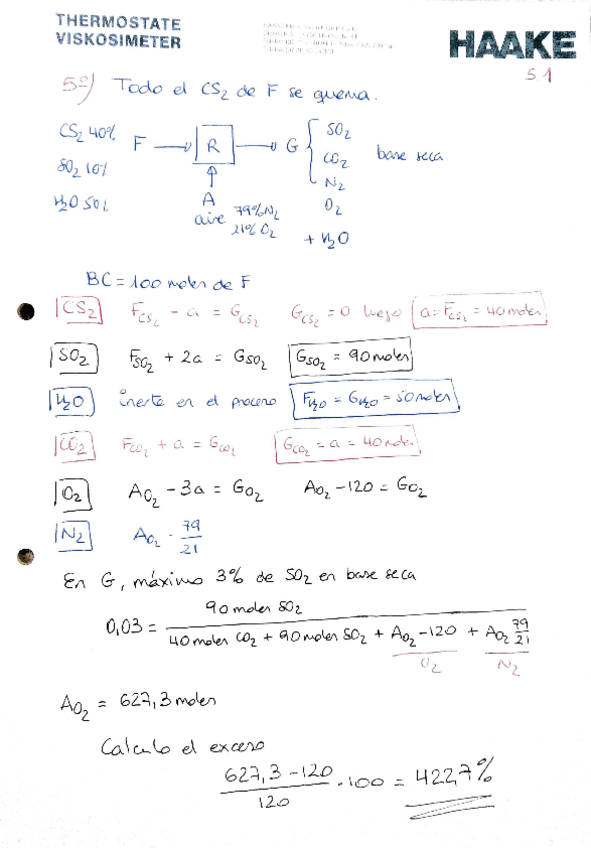 THERMOSTATE
VISKOSIMETER
HAAKE
51
5º) Todo el CS₂ de F se quema.
CS₂ 40%
SO₂ 10%
H₂O 50%
F → R → G { SO₂ CO₂ N₂ O₂ + H₂O base seca
A
aire 79% N₂
21% O₂
BC = 100 moles de F
CS₂ F_CS₂ - a = G_CS₂ G_CS₂ = 0 luego a = F_CS₂ = 40 moles
SO₂ F_SO₂ + 2a = G_SO₂ G_SO₂ = 90 moles
H₂O inerte en el proceso F_H₂O = G_H₂O = 50 moles
CO₂ F_CO₂ + a = G_CO₂ G_CO₂ = a = 40 moles
O₂ A_O₂ - 3a = G_O₂ A_O₂ - 120 = G_O₂
N₂ A_O₂ · 79/21
En G, máximo 3% de SO₂ en base seca
0,03 = 90 moles SO₂ / (40 moles CO₂ + 90 moles SO₂ + A_O₂ - 120 + A_O₂ 79/21)
O₂ N₂
A_O₂ = 627,3 moles
Calculo el exceso
(627,3 - 120) / 120 · 100 = 422,7%